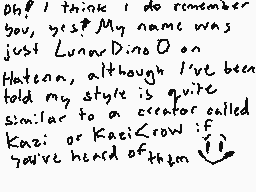 Oh! I think I do remember
you, yes? My name was
just LunarDino0 on
Hatena, although I've been
told my style is quite
similar to a creator called
Kazi or KaziCrow if
you've heard of them